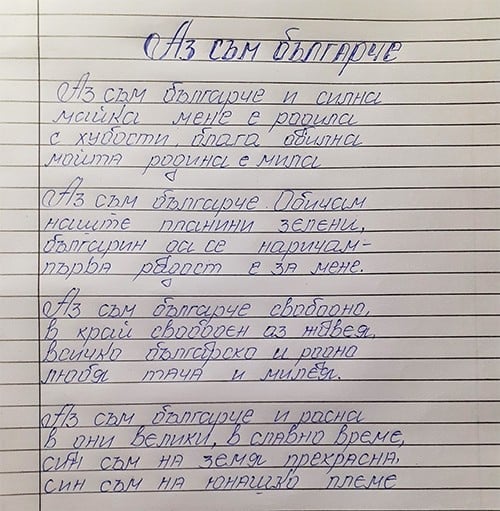 Аз съм българче
Аз съм българче и силна
майка мене е родила
с хубости, блага обилна
мойта родина е мила
Аз съм българче. Обичам
наште планини зелени,
българин да се наричам-
първа радост е за мене.
Аз съм българче свободно,
в край свободен аз живея,
всичко българско и родно
любя тача и милея.
Аз съм българче и расна
в дни велики, в славно време,
син съм на земя прекрасна,
син съм на юнашко племе